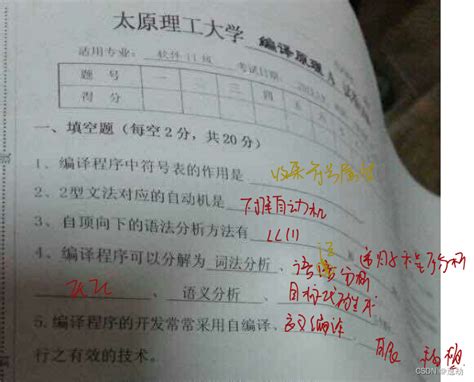 太原理工大学 编译原理 A 试卷
适用专业： 软件11级 考试日期
题 号 一 二 三 四 五 六
得 分
一、填空题（每空2分，共20分）
1、编译程序中符号表的作用是 收集符号属性
2、2型文法对应的自动机是 下推自动机
3、自顶向下的语法分析方法有 LL(1) 递归下降分析
4、编译程序可以分解为 词法分析、语法分析
、语义分析、目标代码生成
5、编译程序的开发常常采用自编译、交叉编译、自展 移植
行之有效的技术。